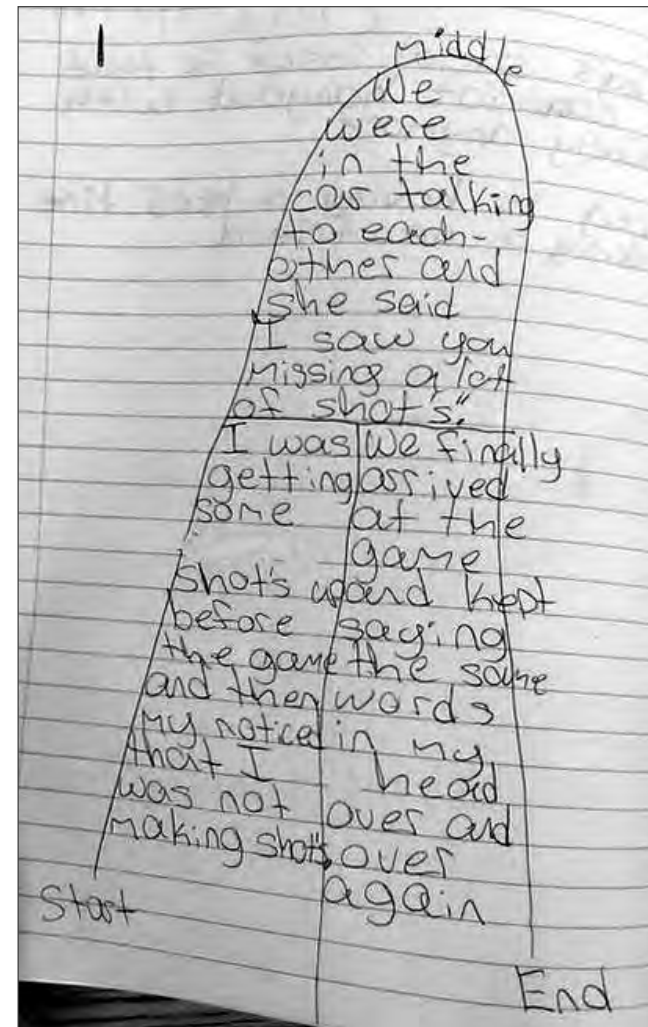 1
Middle
We
were
in the
car talking
to each-
other and
she said
I saw you
missing a lot
of shot's."
I was
getting
some
shot's up
before
the game
and then
my noticed
that I
was not
making shots
Start
We finally
arrived
at the
game
and kept
saying
the same
words
in my
head
over and
over
again
End